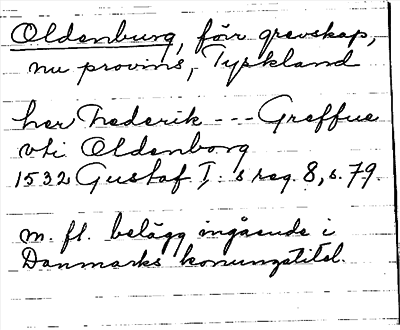 Oldenburg, förr grevskap,
nu provins, Tyskland
her Frederik --- Greffue
vti Oldenborg
1532 Gustaf I:s reg. 8, s. 79.
m. fl. belägg ingående i
Danmarks konungatitel.